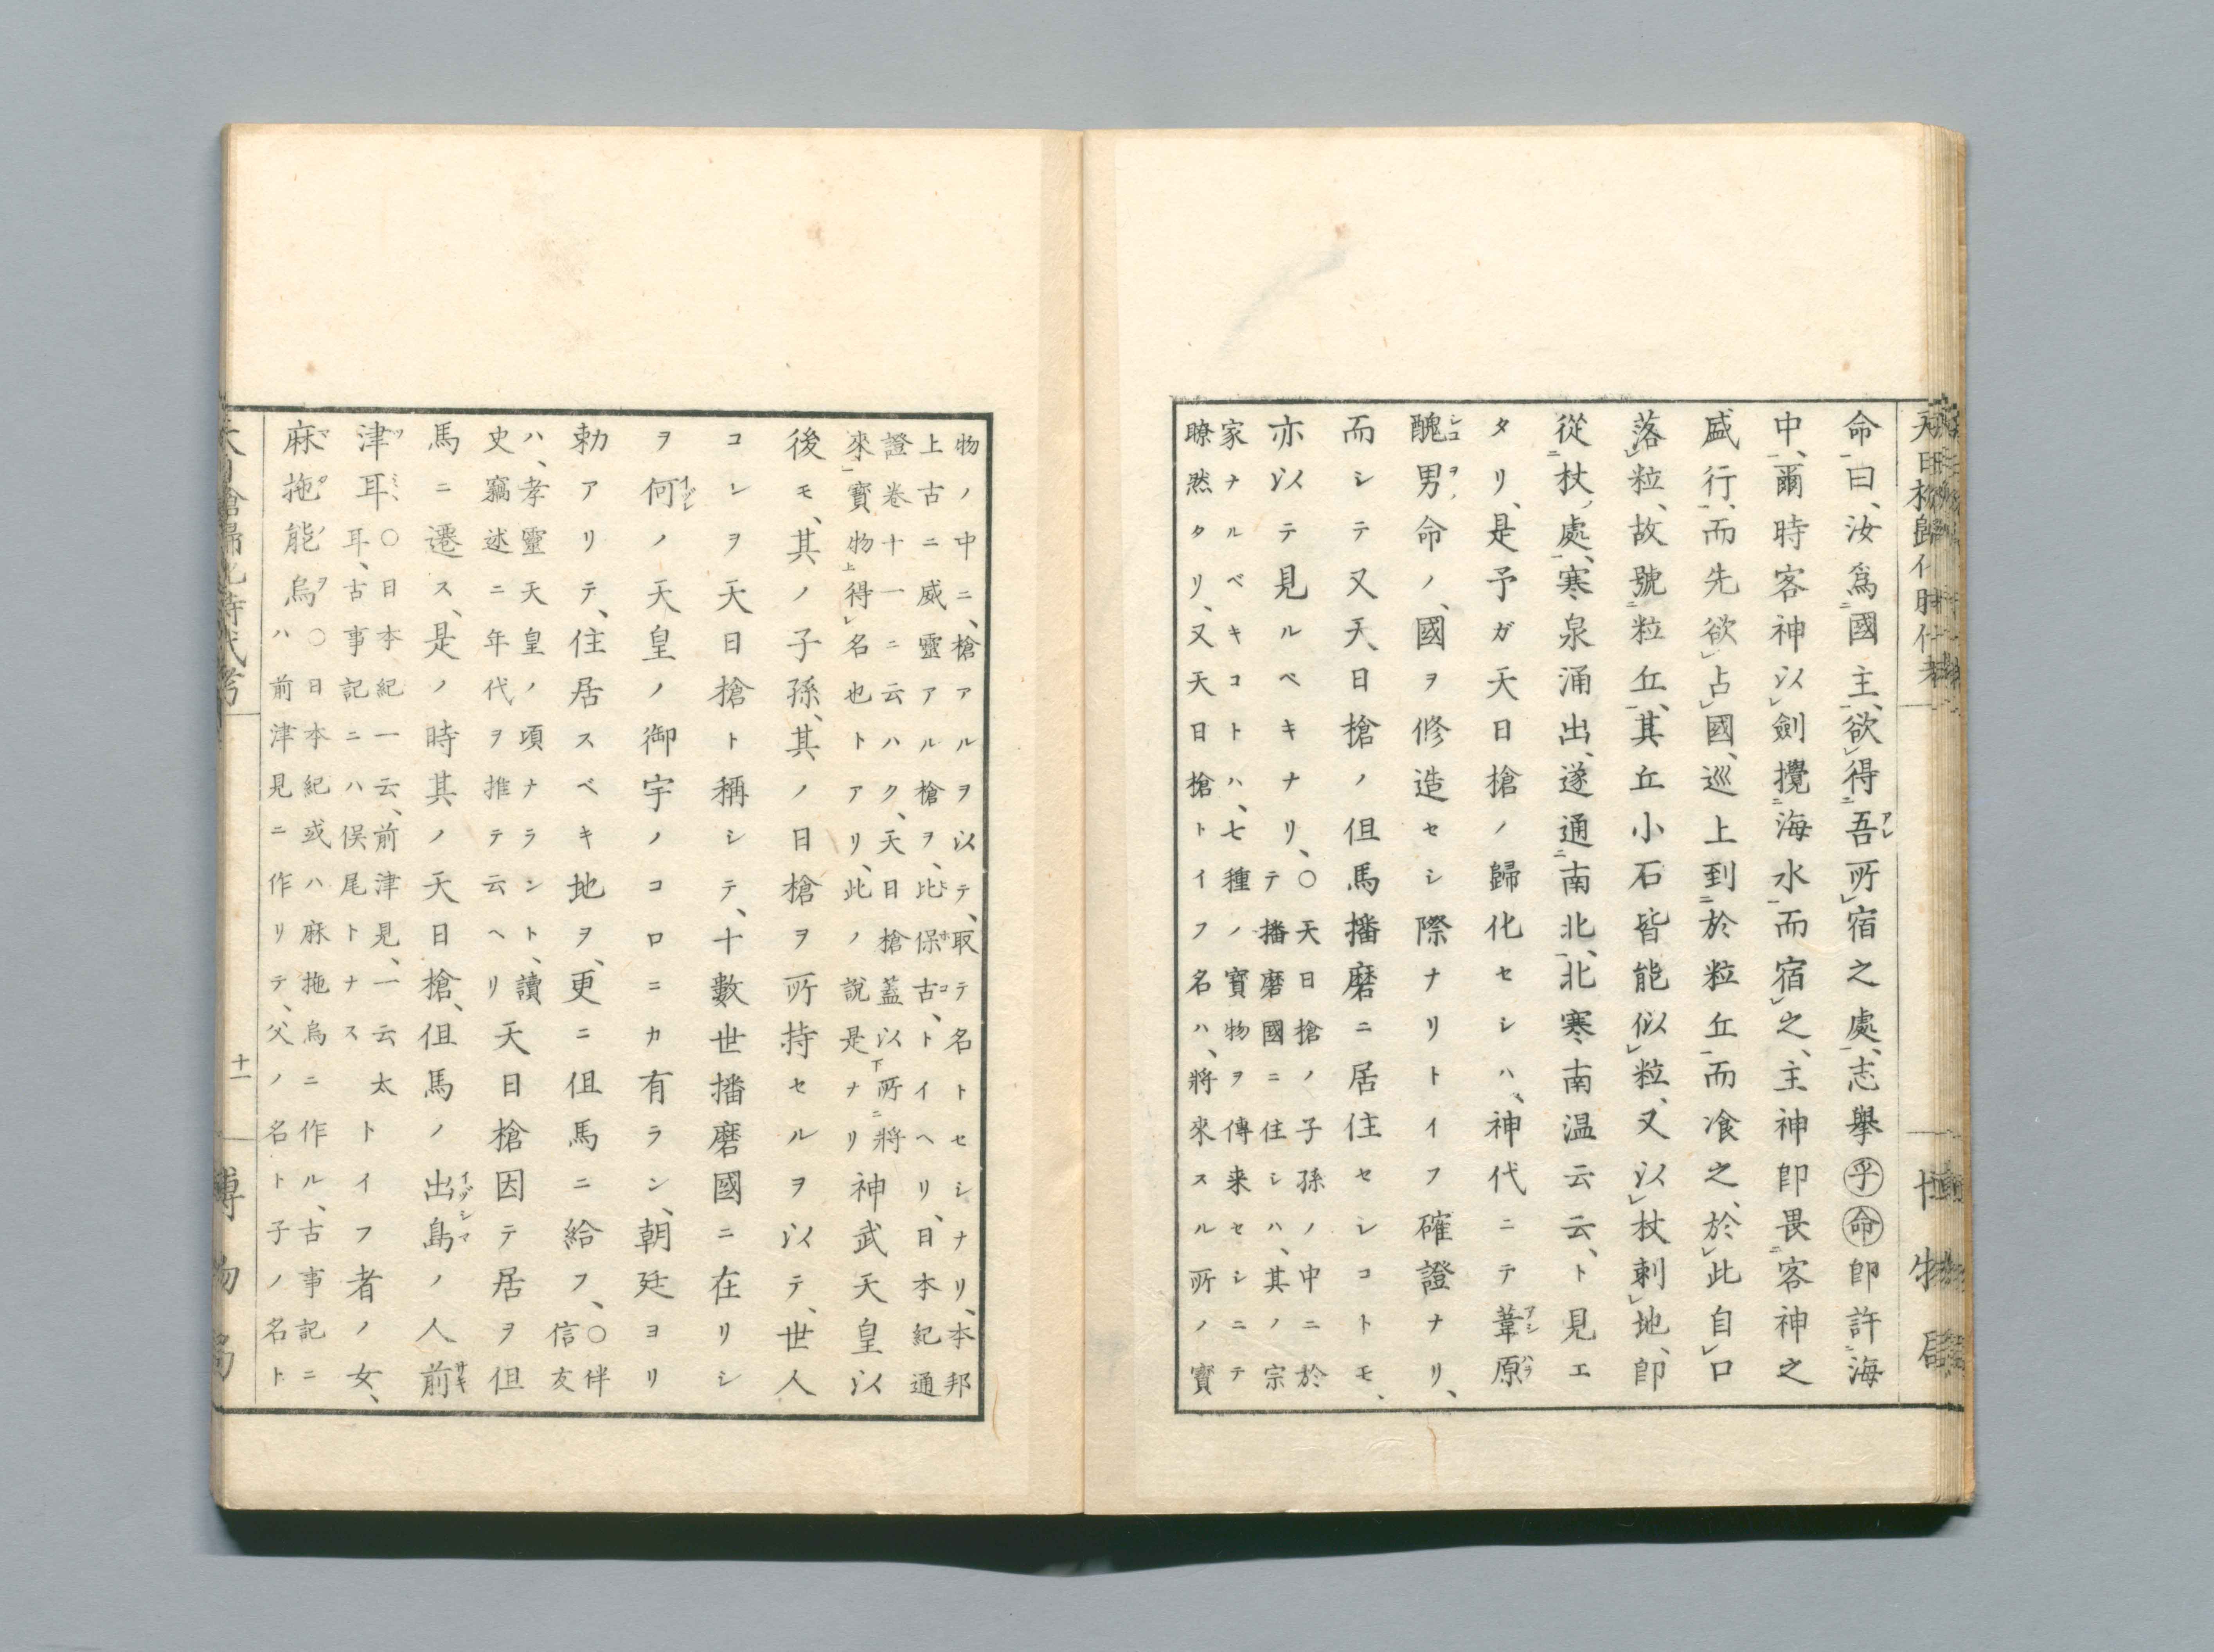 命曰、汝爲國主、欲得吾所宿之處、志擧乎命卽許海
中、爾時客神以劍攪海水而宿之、主神卽畏客神之
盛行、而先欲占國、巡上到於粒丘而飡之、於此自口
落粒、故號粒丘、其丘小石皆能似粒、又以杖刺地、卽
從杖處、寒泉涌出、遂通南北、北寒南温云云、ト見エ
タリ、是予ガ天日槍ノ歸化セシハ、神代ニテ葦原
醜男命ノ、國ヲ修造セシ際ナリトイフ確證ナリ、
而シテ又天日槍ノ但馬播磨ニ居住セシコトモ、
亦以テ見ルベキナリ、
○天日槍ノ子孫ノ中ニ於
テ播磨國ニ住シハ、其ノ宗
家ナルベキコトハ、七種ノ寶物ヲ傳来セシニテ
瞭然タリ、又天日槍トイフ名ハ、將來スル所ノ寶
物ノ中ニ、槍アルヲ以テ、取テ名トセシナリ、本邦
上古ニ威靈アル槍ヲ、比保古、トイヘリ、日本紀通
證卷十一ニ云ハク、天日槍蓋以所將
來寶物得名也トアリ、此ノ說是ナリ
神武天皇以
後モ、其ノ子孫、其ノ日槍ヲ所持セルヲ以テ、世人
コレヲ天日槍ト稱シテ、十數世播磨國ニ在リシ
ヲ何ノ天皇ノ御宇ノコロニカ有ラン、朝廷ヨリ
勅アリテ、住居スベキ地ヲ、更ニ但馬ニ給フ、
○伴
信友
ハ、孝靈天皇ノ頃ナラント、讀
史竊述ニ年代ヲ推テ云ヘリ
天日槍因テ居ヲ但
馬ニ遷ス、是ノ時其ノ天日槍、但馬ノ出島ノ人前
津耳、
○日本紀一云、前津見、一云太
耳、古事記ニハ俣尾トナス
トイフ者ノ女、
麻拖能烏
○日本紀或ハ麻拖烏ニ作ル、古事記ニ
ハ前津見ニ作リテ、父ノ名ト子ノ名ト
十一